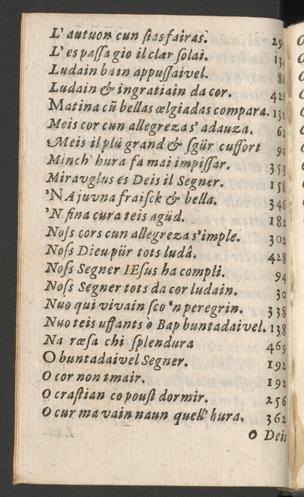 L' autuon cun stas fairas. 29
L' es passagio il clær solai. 13
Ludain bain appussaivel. 86
Ludain & ingratiain da cor. 42
Matina cũ bellas œlgiadas compara. 13
Meis cor cun allegrezas' adauza. 62
Meis il plü grand & sgür cussort 90
Minch' hura fa mai impissar. 353
Miravglus es Deis il Segner. 158
'NA juvna fraisck & bella. 346
'N fina cura teis agüd. 182
Noss cors cun allegrezas' imple. 302
Noss Dieu pür tots ludâ. 428
Noss Segner IEsus ha compli. 94
Noss Segner tots da cor ludain. 30
Nuo qui vivain sco 'n peregrin. 338
Nuo teis uffants ò Bap buntadaivel. 138
Na ræsa chi splendura 469
O buntadaivel Segner. 192
O cor non tmair. 192
O crastian co poust dormir. 256
O cur ma vain naun quell' hura. 362
O Deis